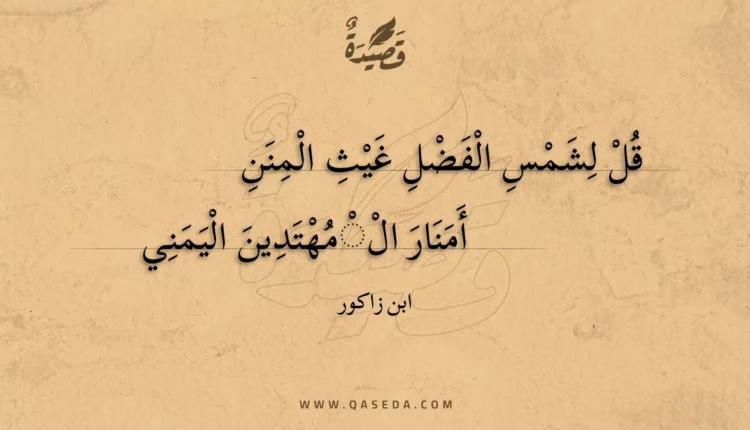 قَصِيدَةٌ
قُلْ لِشَمْسِ الْفَضْلِ غَيْثِ الْمِنَنِ
أَمَنَارَ الْ ْمُهْتَدِينَ الْيَمَنِي
ابن زاكور
WWW.QASEDA.COM